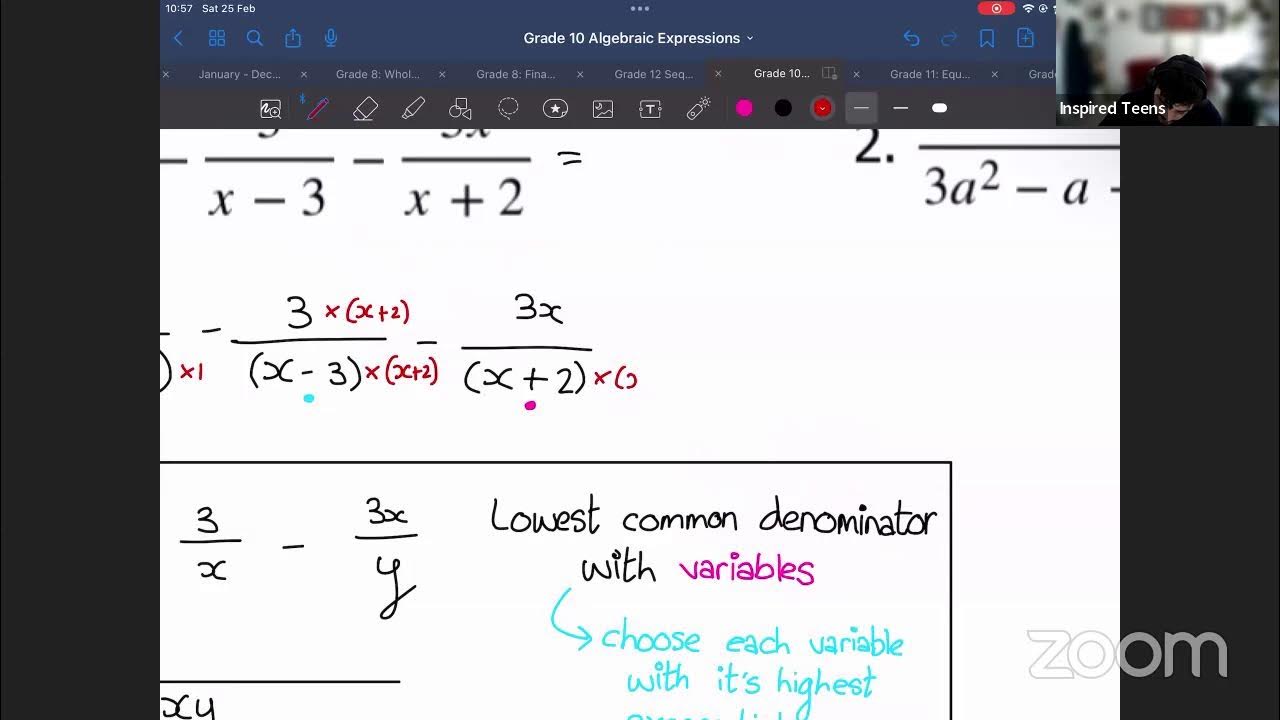 10:57 Sat 25 Feb
Grade 10 Algebraic Expressions
January - Dec... Grade 8: Whol... Grade 8: Fina... Grade 12 Seq... Grade 10... Grade 11: Equ... Grade
Inspired Teens
x − 3 x + 2 =
2.
3a² − a
3 ×(x+2) 3x
) ×1 − (x − 3) ×(x+2) − (x + 2) ×(
3 3x
x − y
xy
Lowest common denominator
with variables
choose each variable
with it's highest
zoom